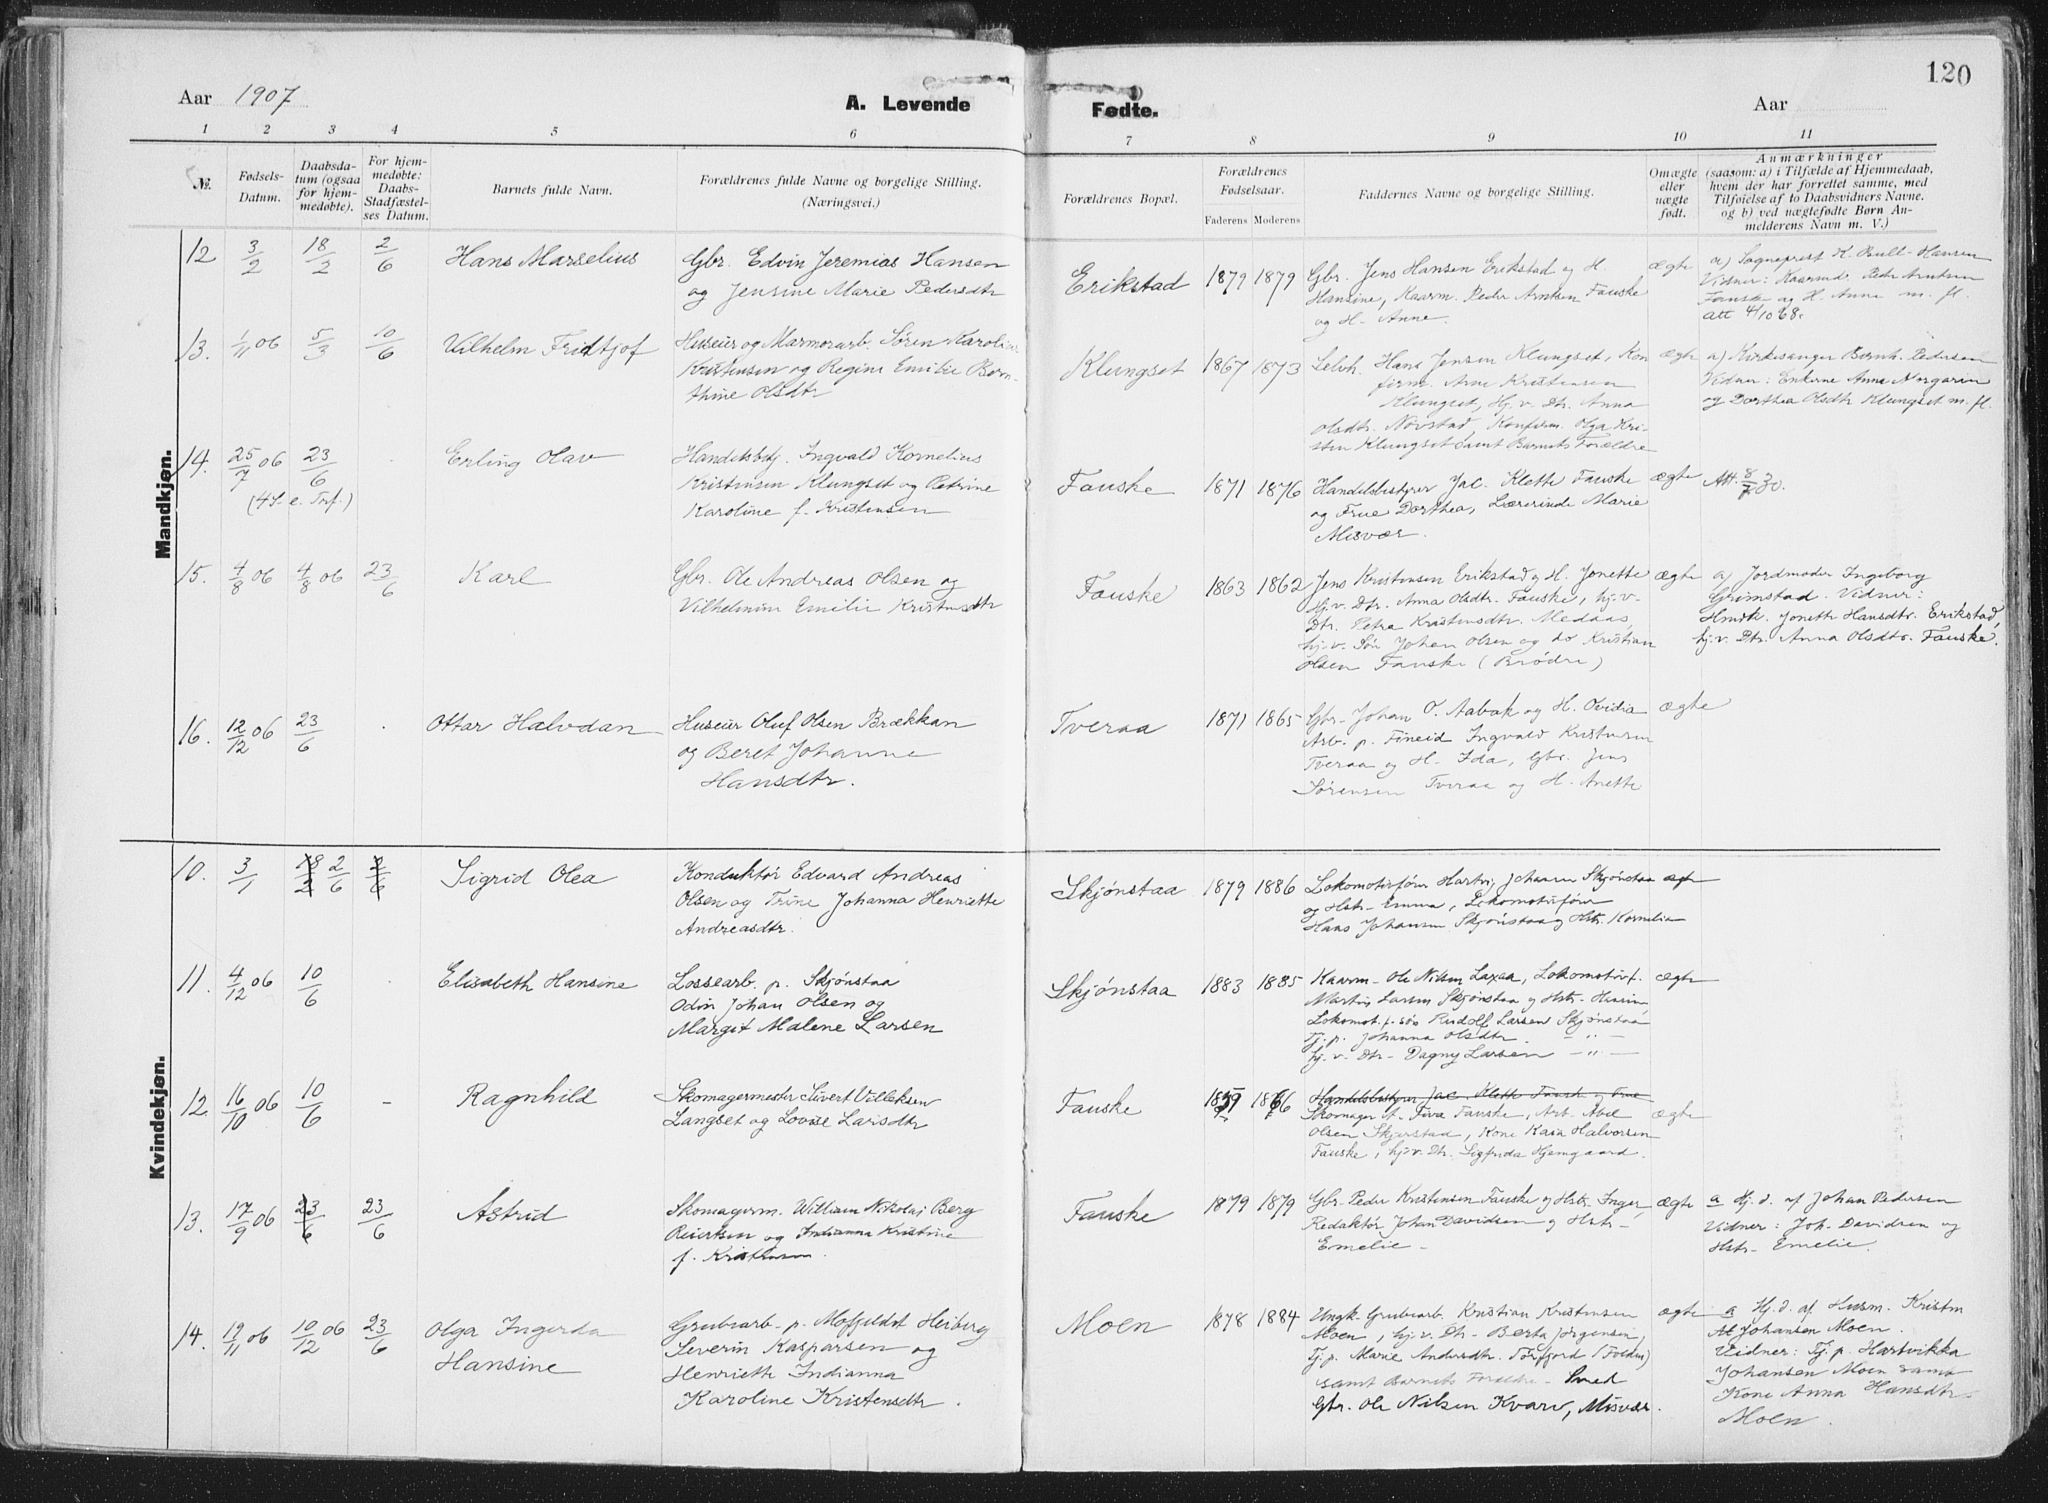 120
Aar 1907
A. Levende
Fødte.
Aar
1 2 3 4 5 6 7 8 9 10 11
№.
Fødsels-
Datum.
Daabsda-
tum (ogsaa
for hjem-
medøbte).
For hjem-
medøbte:
Daabs-
Stadfæstel-
ses Datum.
Barnets fulde Navn.
Forældrenes fulde Navne og borgelige Stilling.
(Næringsvei.)
Forældrenes Bopæl.
Forældrenes
Fødselsaar.
Faderens Moderens
Faddernes Navne og borgelige Stilling.
Omægte
eller
uægte
født.
Anmærkninger
(saasom: a) i Tilfælde af Hjemmedaab,
hvem der har forrettet samme, med
Tilføielse af to Daabsvidners Navne.
og b) ved uægtefødte Børn An-
melderens Navn m. V.)
Mandkjøn.
12 3/2 18/2 2/6 Hans Marselius
Gbr. Edvin Jeremias Hansen
og Jensine Marie Pedersdtr
Erikstad 1879 1879
Gbr. Jens Hansen Erikstad og H.
Hansine, Kaarm. Peder Arntsen Fauske
og H. Anne.
ægte
a) Sogneprest K. Bull-Hansen
Vidner: Kaarmd. Peder Arntsen
Fauske og H. Anne m. fl.
Att 4/10 68.
13. 1/11 06 5/3 10/6 Vilhelm Fridtjof
Huseier og Marmorarb. Søren Karolius
Kristensen og Regine Emilie Bern-
thine Olsdtr
Klungset 1867 1873
Selvh. Hans Jensen Klungset, Kon
firm. Arne Kristensen
Klungset, Hj. v. Dtr. Anna
Olsdtr. Novstad, Konfirm. Olga Kri-
stin Klungset samt Barnets Forældre
ægte
a) Kirkesanger Bernh. Pedersen
Vidner: Enkerne Anna Norgarin
og Dorthea Olsdtr Klungset m. fl.
14. 25/7 06 23/6
(4S. e. Trf.)
Erling Olav
Handelsbstj. Ingvald Kornelius
Kristensen Klungset og Petrine
Karoline f. Kristensen
Fauske 1871 1876
Handelsbestyrer Jac. Klette Fauske
og Frue Dorthea, Lærerinde Marie
Misvær.
ægte
Att. 8/7 30.
15. 4/8 06 4/8 06 23/6 Karl
Gbr. Ole Andreas Olsen og
Vilhelmine Emilie Kristensdtr
Fauske 1863 1862
Jens Kristensen Erikstad og H. Jonette
Hj. v. Dtr. Anna Olsdtr. Fauske, hj. v.
Dtr. Petra Kristensdtr. Medaas,
hj. v. Søn Johan Olsen og do Kristian
Olsen Fauske (Brødre)
ægte
a) Jordmoder Ingeborg
Grimstad. Vidner:
Hmdk. Jonette Hansdtr. Erikstad,
hj. v. Dtr. Anna Olsdtr. Fauske.
16. 12/12 06 23/6 Ottar Halvdan
Huseier Oluf Olsen Brækkan
og Beret Johanne
Hansdtr.
Tveraa 1871 1865
Gbr. Johan O. Aabak og H. Ovidia
Arb. p. Fineid Ingvald Kristensen
Tveraa og H. Ida, Gbr. Jens
Sørensen Tveraa og H. Anette
ægte
Kvindekjøn.
10. 3/1 18/2 2/6 2/6 Sigrid Olea
Konduktør Edvard Andreas
Olsen og Trine Johanna Henriette
Andreasdtr.
Skjønstaa 1879 1886
Lokomotivfører Hartvig Johansen Skjønstaa ægte
og Hstr. Emma, Lokomotivfører
Hans Johansen Skjønstaa og Hstr. Kornelia
11. 4/12 06 10/6 Elisabeth Hansine
Lossearb. p. Skjønstaa
Odin Johan Olsen og
Margit Malene Larsen
Skjønstaa 1883 1885
Kaarm. Ole Nilsen Laxaa, Lokomotivf.
Martin Larsen Skjønstaa og Hstr.
Lokomot.f. søn Rudolf Larsen Skjønstaa
Tj. p. Johanna Olsdtr. — " —
hj. v. Dtr. Dagny Larsen — " —
ægte
12. 16/10 06 10/6 - Ragnhild
Skomagermester Sivert Villeksen
Langset og Lovise Larsdtr
Fauske 1859 1866
Handelsbestyrer Jac. Klette Fauske og Frue
Skomager A. Five Fauske, Arb. Abel
Olsen Skjerstad, Kone Kaia Halvorsen
Fauske, hj. v. Dtr. Sigfrida Hjemgaard.
ægte
13. 17/9 06 23/6 23/6 Astrid
Skomagerm. William Nikolaj Berg
Reiertsen og Indianna Kristine
f. Kristensen.
Fauske 1879 1879
Gbr. Peder Kristensen Fauske og Hstr. Inger
Redaktør Johan Davidsen og Hstr.
Emelie.
ægte
a Hj. d. af Johan Pedersen
Vidner: Joh. Davidsen og
Hstr. Emelie.
14. 19/11 06 10/12 06 23/6 Olga Ingerda
Hansine
Grubearb. p. Mofjeldet Heiberg
Severin Kaspersen og
Henriette Indianna
Karoline Kristensdtr.
Moen 1878 1884
Ungk. Grubearb. Kristian Kristensen
Moen, hj. v. Dtr. Berta Jørgensen,
Tj. p. Marie Andersdtr. Tørfjord (Folden)
samt Barnets Forældre. Smed
Gbr. Ole Nilsen Kvarv, Misvær.
ægte
a Hj. d. af Husm. Kristen
At Johansen Moen.
Vidner: Tj. p. Hartvikka
Johansen Moen samt
Kone Anna Hansdtr.
Moen.